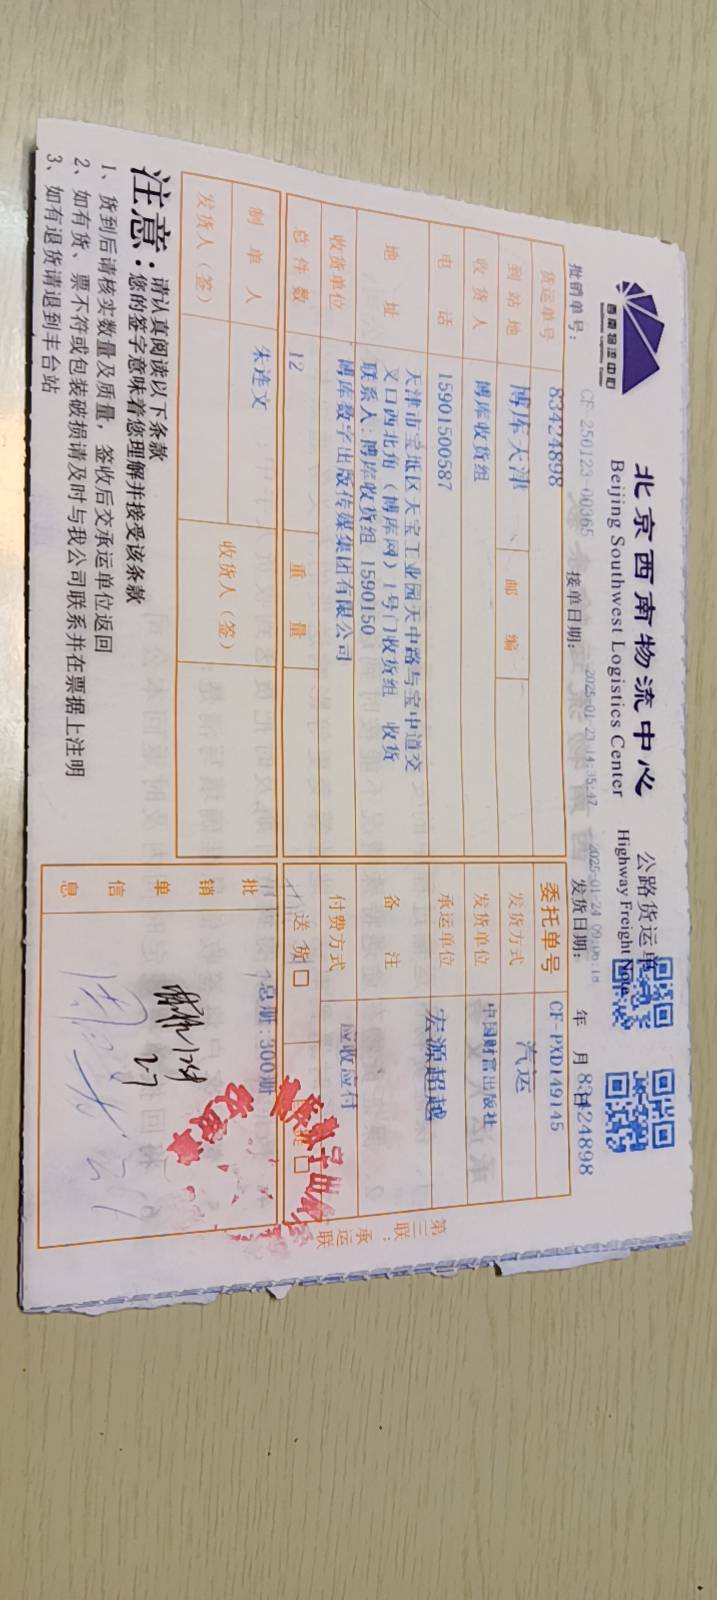 西南物流中心
北京西南物流中心 公路货运单
Beijing Southwest Logistics Center Highway Freight Note
批销单号： CF-250123-00365 接单日期： 2025-01-23 14:35:47 发货日期： 2025-01-24 09:06:18 年 月 日
83424898
货运单号 83424898 委托单号 CF-PXD149145
到站地 博库天津 邮编 发货方式 汽运
收货人 博库收货组 发货单位 中国财富出版社
电话 15901500587 承运单位 宏源超越
地址 天津市宝坻区天宝工业园天中路与宝中道交
叉口西北角（博库网）1号门收货组 收货
联系人：博库收货组 1590150
备注
收货单位 博库数字出版传媒集团有限公司 付费方式 应收应付
总件数 12 重量 送货
制单人 朱连文 收货人（签） 批销单信息 总册:300册
发货人（签）
收货章
注意： 请认真阅读以下条款
您的签字意味着您理解并接受该条款
1、货到后请核实数量及质量，签收后交承运单位返回
2、如有货、票不符或包装破损请及时与我公司联系并在票据上注明
3、如有退货请退到丰台站
第三联：承运联